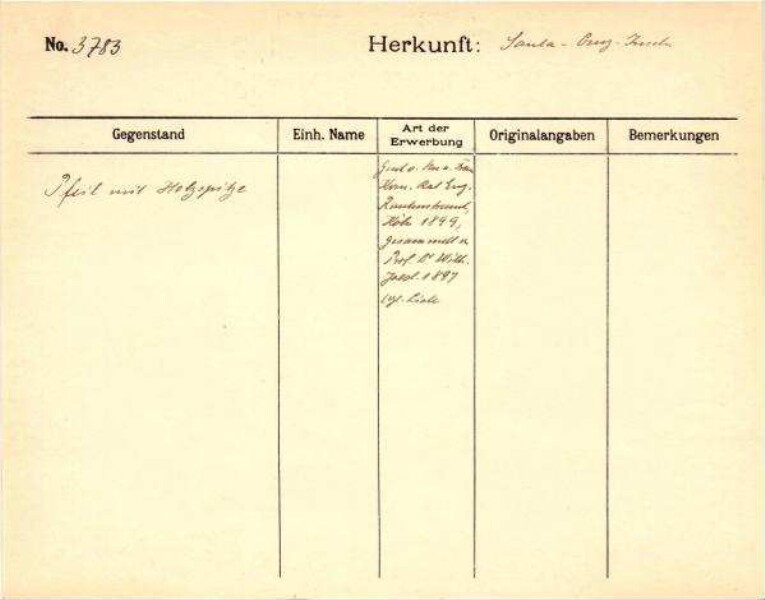 No. 3783 Herkunft: Santa-Cruz-Inseln
Gegenstand Einh. Name Art der Erwerbung Originalangaben Bemerkungen
Pfeil mit Holzspitze
Gesch. v. Frau
Kom. Rat Eug.
Rautenstrauch,
Köln 1899,
gesammelt v.
Prof. Dr Wilh.
Joest 1897
vgl. Liste